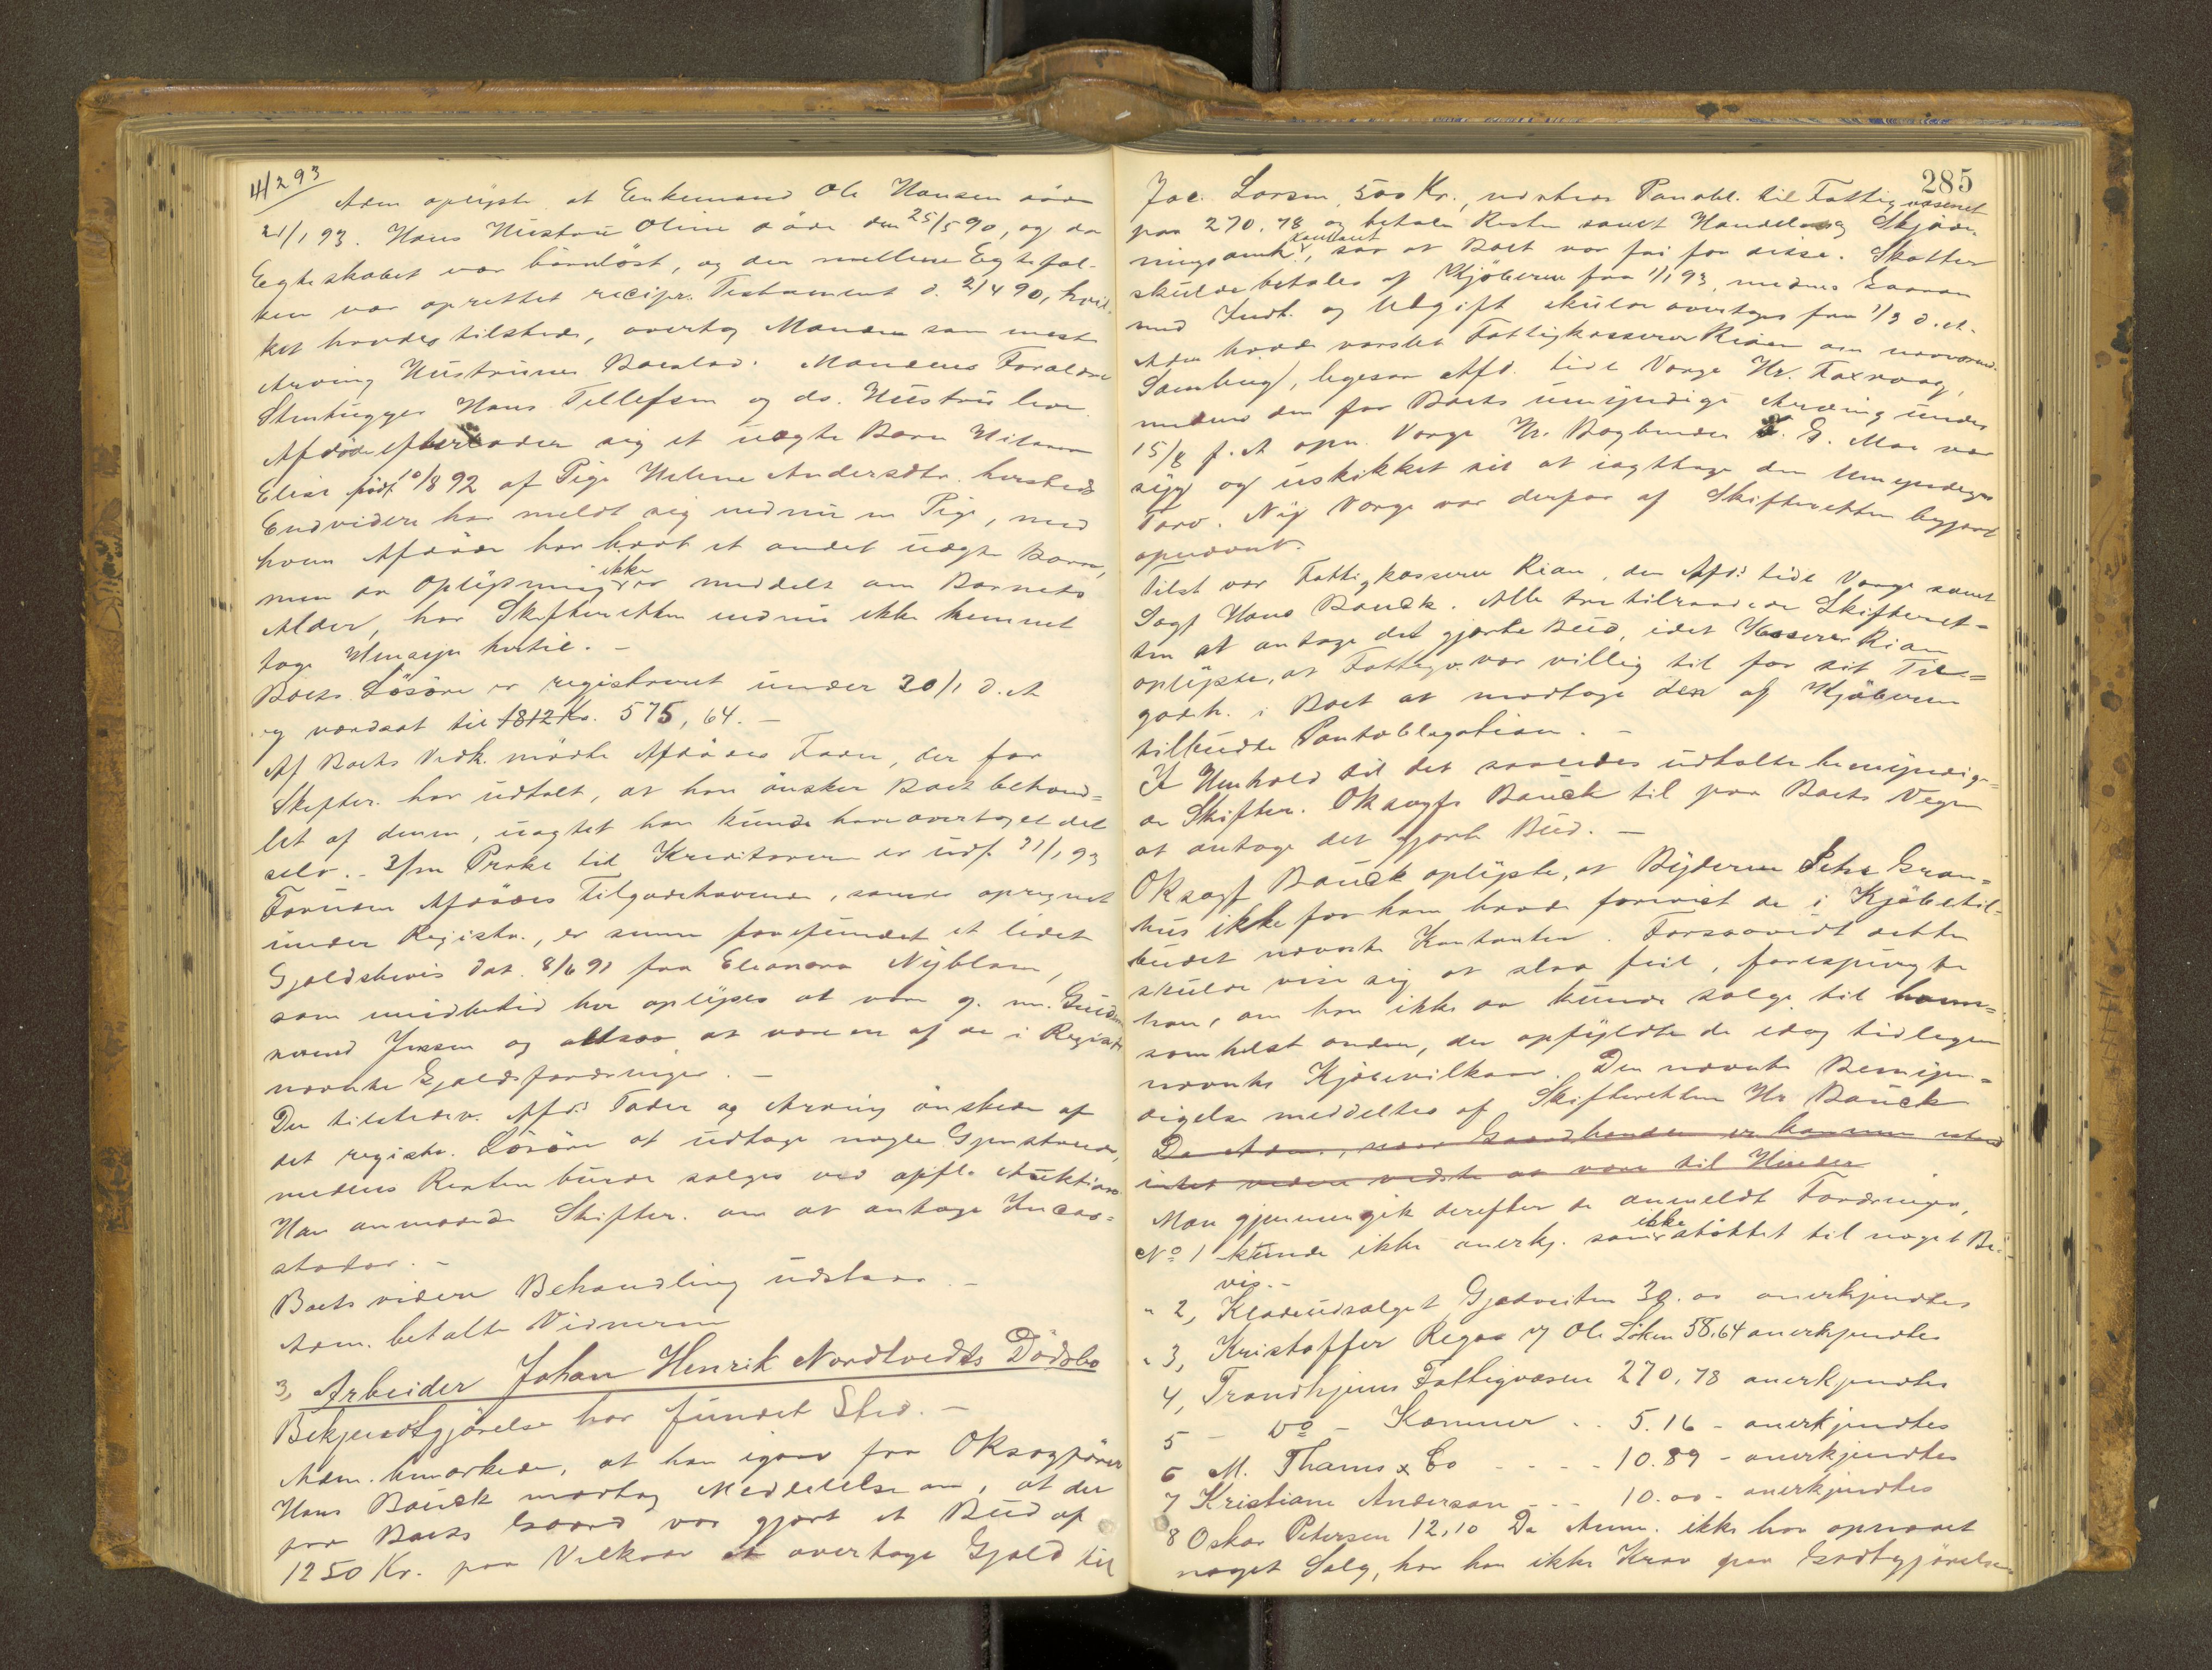 4/2 93
Adm oplyste at Enkemand Ole Hansen døde
21/1 93. Hans Hustru Oline døde den 25/5 90, og da
Egteskabet var barnløst, og der mellem Egtefol-
kene var oprettet recipr. Testament d. 2/4 90, hvil-
ket havdes tilstede, overtog Manden som næste
Arving Hustruens Boeslod. Mandens Forældre
Stenhugger Hans Tellefsen og ds. Hustru lever
Afdøde efterlader sig et uægte Barn
Elise født 10/8 92 af Pige Helene Andersdtr. hersteds
Endvidere har meldt sig endnu en Pige, med
hvem Afdøde har havt et andet uægte Barn,
men da Oplysning ikke er meddelt om Barnets
Alder, har Skifteretten endnu ikke kunnet
tage Hensyn hertil. -
Boets Løsøre er registreret under 30/1 d. A
og værdsat til 1812 Kr. 575,64. -
Af Boets Vedk. mødte Afdødes Fader, der for
Skifter. har udtalt, at han ønsker Boet behand=
let af denne, uagtet han kunde have overtaget det
selv. - 3/m Prokl til Kreditorerne er udf. 31/1 93
Foruden Afdødes Tilgodehavende, som er opregnet
under Registr., er senere forefundet et lidet
Gjeldsbevis dat. 8/6 91 fra Eleonora Nyblom,
som imidlertid her oplyses at være g. m.
Jensen og altsaa at være en af de i Registr
nævnte Gjeldsfordringer. -
Den tilstedev. Afd.s Fader og Arving ønskede af
det registr. Løsøre at udtage nogle Gjenstande,
medens Resten burde sælges ved offtl. Auktion
Han anmodede Skifter. om at antage Incas=
sator. -
Boets videre Behandling udstaar -
Adm. betalte Vidnerne
3, Arbeider Johan Henrik Nordtvedts Dødsbo
Bekjendtgjørelse har fundet Sted. -
Adm. bemærkede, at han igaar fra OKsagfører
Hans Bauck modtog Meddelelse om, at der
paa Boets Gaard var gjort et Bud af
1250 Kr. paa Vilkaar at overtage Gjæld til
285
Jac. Larsen 500 Kr., udstede Panobl. til Fattigvæsenet
paa 270.78 og betale Resten samt Handels og Skjød-
ningsomk. kontant, saa at Boet var fri for disse. Skatter
skulde betales af Kjøberen fra 1/1 93, medens Gaarden
med Indt. og Udgift skulde overtages fra 1/3 d. A.
Adm havde varslet Fattigkasserer Rian om nærværende
Samling, ligesaa Afd. tidl Værge Hr. Faxvaag,
medens den for Boets umyndige Arving under
15/8 f. A opn. Værge Hr. Bogbinder G. Moe var
syg og uskikket til at iagttage den Umyndiges
Tarv. Ny Værge var derfor af Skifteretten begjært
opnævnt.
Tilst var Fattigkasserer Rian, den Afd.s tidl Værge samt
Sagf Hans Bauck. Alle tre tilraadede Skifteret=
ten at antage det gjorte Bud, idet Kasserer Rian
oplyste, at Fattigv. var villig til for sit Til=
godeh. i Boet at modtage den af Kjøberen
tilbudte Pantobligation. -
I Henhold til det saaledes udtalte bemyndig-
de Skifter. OKsagf Bauck til paa Boets Vegne
at antage det gjorte Bud. -
OKsagf Bauck oplyste, at Byderen Peter Gran=
hus ikke for ham havde forevist de i Kjøbetil-
budet nævnte Kontanter. Forsaavidt dette
skulde vise sig at slaa feil, forespurgte
han, om han ikke da kunde sælge til hvem=
somhelst anden, der opfyldte de idag tidligere
nævnte Kjøbevilkaar. Den nævnte Bemyn=
digelse meddeltes af Skifteretten Hr Bauck
Da Adm.
intet videre vidste at være til Hinder
Man gjennemgik derefter de anmeldte Fordringer,
No 1 kunde ikke anerkj. som ikke støttet til noget Be-
vis. -
" 2, Klædeudsalget Gjedveiten 30.00 anerkjendtes
" 3, Kristoffer Regaa og Ole Løken 58.64 anerkjendtes
4, Trondhjems Fattigvæsen 270,78 anerkjendtes
5 - Do - Kæmner - - 5.16 - anerkjendtes
6 M. Thams & Co - - - - 10.89 - anerkjendtes
7 Kristiane Anderson - - - 10.00 - anerkjendtes
8 Oskar Petersen 12,10 Da Anm. ikke har opnaaet
noget Salg, har han ikke Krav paa Godtgjørelse